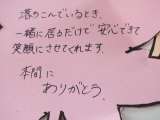 落ちこんでいるとき、
一緒に居るだけで安心できて
笑顔にさせてくれます。
本間に
ありがとう。